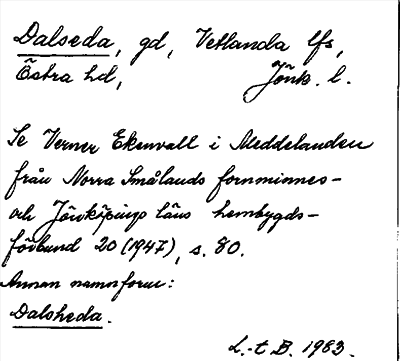 Dalseda, gd, Vetlanda lfs,
Östra hd, Jönk. l.
Se Verner Ekenvall i Meddelanden
från Norra Smålands fornminnes-
och Jönköpings läns hembygds-
förbund 20 (1947), s. 80.
Annan namnform:
Dalsheda.
L.-t B. 1983.